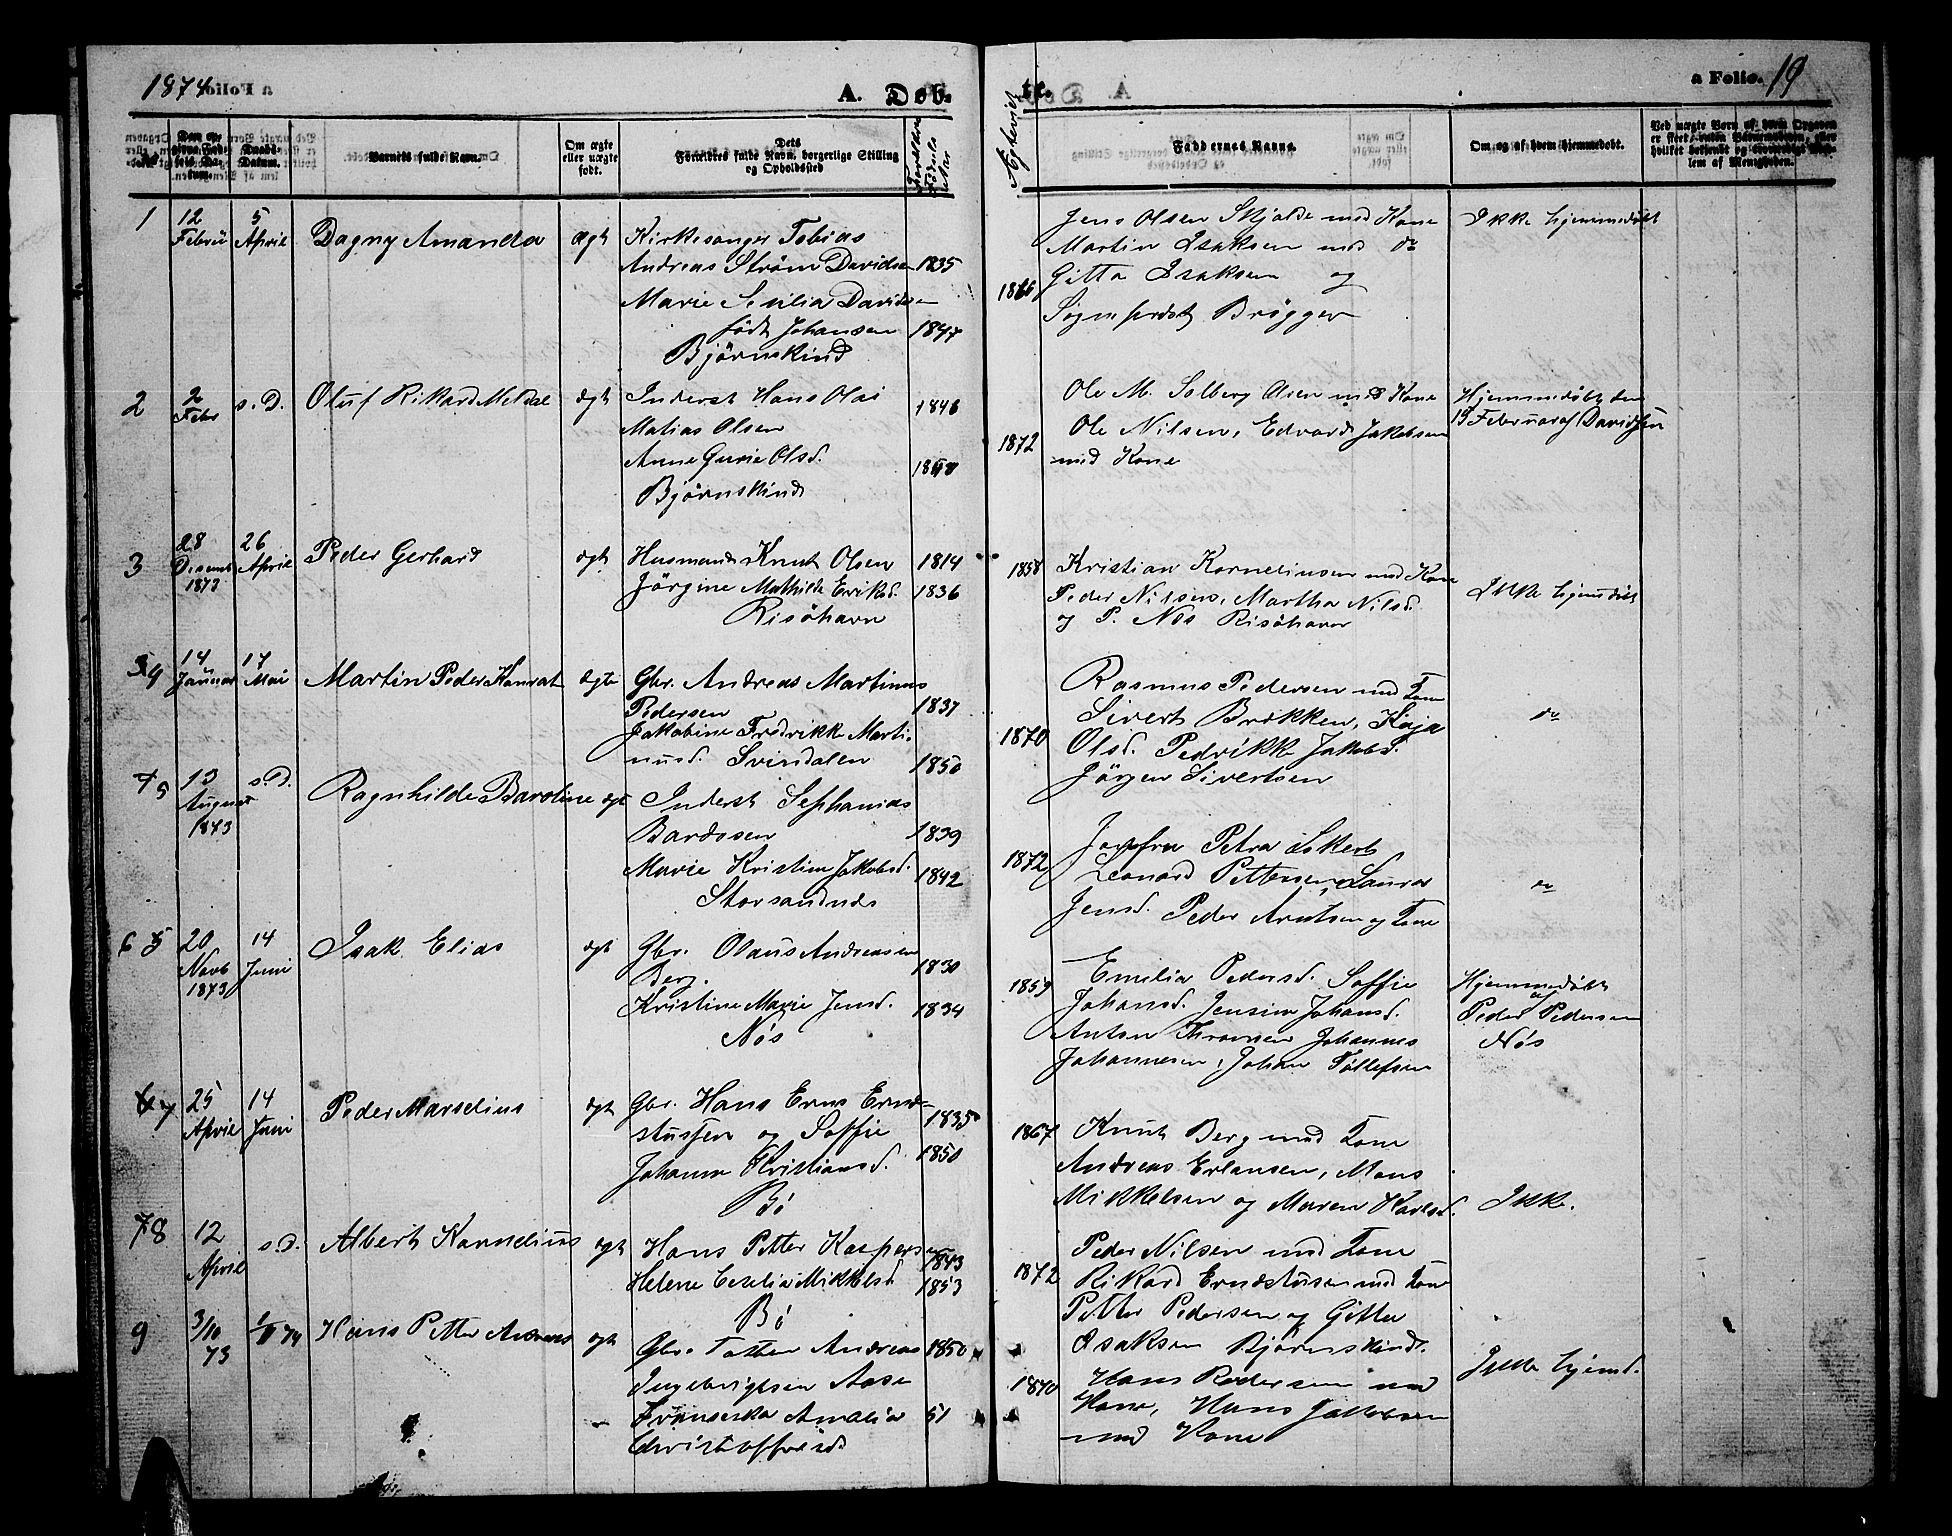 1874
A. Døb
te.
a Folio. 19
Barnets fulde Navn.
Om ægte eller uægte født.
Dets Forældres fulde Navn, borgerlige Stilling og Opholdssted
Forældrenes Fødsels Aar
Ægteviet
Faddernes Navne.
Om og af hvem hjemmedøbt.
1
12 Febru
5 April
Dagny Amanda
ægte
Kirkesanger Tobias
Andreas Strøm Davidsen 1835
Marie Sesilia Davidsen
født Johansen 1847
Bjørnskind
1866
Jens Olsen Skjolde med Kone
Martin Isaksen med do
Gitta Isaksen og
Sognepræst Brøgger
Ikke hjemmedøbt
2
2 Febr
s. D.
Oluf Rikard Meldal
ægte
Inderst Hans Olai 1846
Matias Olsen
Anne Gurie Olsd.
Bjørnskind
1872
Ole M. Solberg Olsen med Kone
Ole Nilsen, Edvard Jakobsen
med Kone
Hjemmedøbt den
15 Februar af Davidsen
3
28 Desemb 1873
26 April
Peder Gerhard
ægte
Husmand Knut Olsen 1814
Jørgine Mathilde Eriksd. 1836
Risøhavn
1858
Kristian Kornelinsen med Kone
Peder Nilsen, Martha Nilsd.
og P. Nøs Risøhavn
Ikke hjemdøbt
4
14 Januar
17 Mai
Martin Peder Konrat
ægte
Gbr. Andreas Martinus
Pedersen 1837
Jakobine Fredrikke Marti-
nusd. Svindalen 1850
1870
Rasmus Pedersen med Kone
Sivert Brekken, Kaja
Olsd. Pedrikke Jakobsd.
Jørgen Sivertsen
do
5
13 August 1873
s. D.
Ragnhilde Baroline
ægte
Inderst Sephanias
Bardosen 1839
Marie Kristine Jakobsd. 1842
Storsandnes
1872
Jomfru Petra Sikert
Leonard Pettersen, Laura
Jensd. Peder Arntsen og Kone
do
6
20 Novb 1873
14 Juni
Isak Elias
ægte
Gbr. Olaus Andreassen
Berg. 1830
Kristine Marie Jensd. 1834
Nøs
1859
Emelia Pedersd. Soffie
Johansd. Jensine Johansd.
Anton Thronsen Johannes
Johannesen, Johan Tollefsen
Hjemmedøbt
af
Peder Pedersen
Nøs
7
25 April
14 Juni
Peder Marselius
ægte
Gbr. Hans Erns Ernd-
stussen og Soffie 1835
Johanne Kristiansd. 1850
Bø
1867
Knut Berg med Kone
Andreas Erlansen, Mons
Mikkelsen og Maren Karlsd.
Ikke.
8
12 April
s. d.
Albert Kornelius
ægte
Hans Petter Kaspersen 1843
Helene Cecelia Mikkelsd. 1853
Bø
1872
Peder Nilsen med Kone
Rikard Erndstusen med Kone
Petter Pedersen og Gitte
Isaksen Bjørnskind.
9
3/10 73
Hans Petter Andreas
ægte
Gbr. Torben Andreas 1850
Ingebrigtsen Aase
Franseska Amalia 51
Christoffersd.
1870
Hans Pedersen med
Kone, Hans Jakobsen
med Kone
Ikke hjemd.